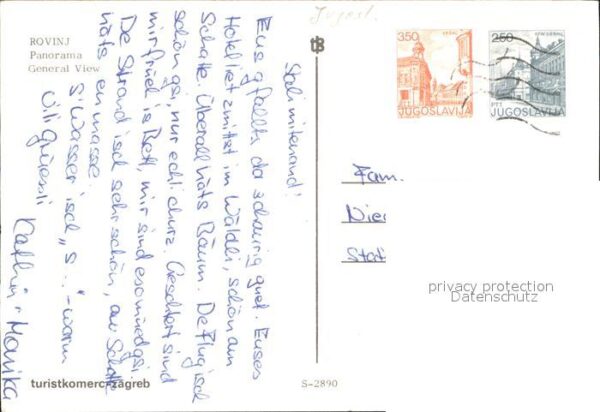 ROVINJ
Panorama
General View
Jugosl.
350
VRŠAC
PTT
JUGOSLAVIJA
250
PTT
JUGOSLAVIJA
Sali mitenand!
Eus gfallts da schaurig guet. Euses
Hotel ist zmitzt im Wäldli, schön am
Schatte. Überall häts Bäum. De Flug isch
schön gsi, nur echli churz. Geschtert sind
mir früeh is Bett, mir sind eso müed gsi.
De Strand isch sehr schön, au Schatte
häts en masse.
S'Wasser isch „s...“-warm
Vili grüessli Kathrin + Monika
Fam.
Nier
Stad
privacy protection
Datenschutz
turistkomerc zagreb
S-2890